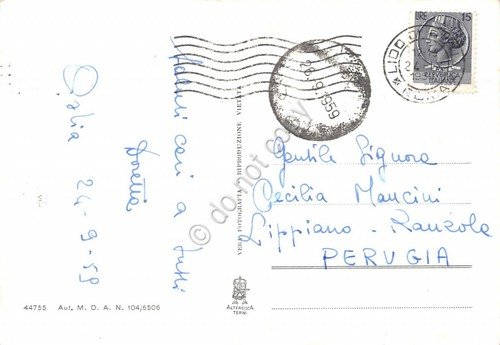 Saluti cari a tutti
Ostia 24-9-59
LIRE 15
LIDO DI
ROMA
1959
VERA FOTOGRAFIA - RIPRODUZIONE VIETATA
Gentile Signora
Cecilia Mancini
Lippiano - Ranzola
PERUGIA
do not copy
44755 Aut. M. D. A. N. 104/6506
ALTEROCCA
TERNI